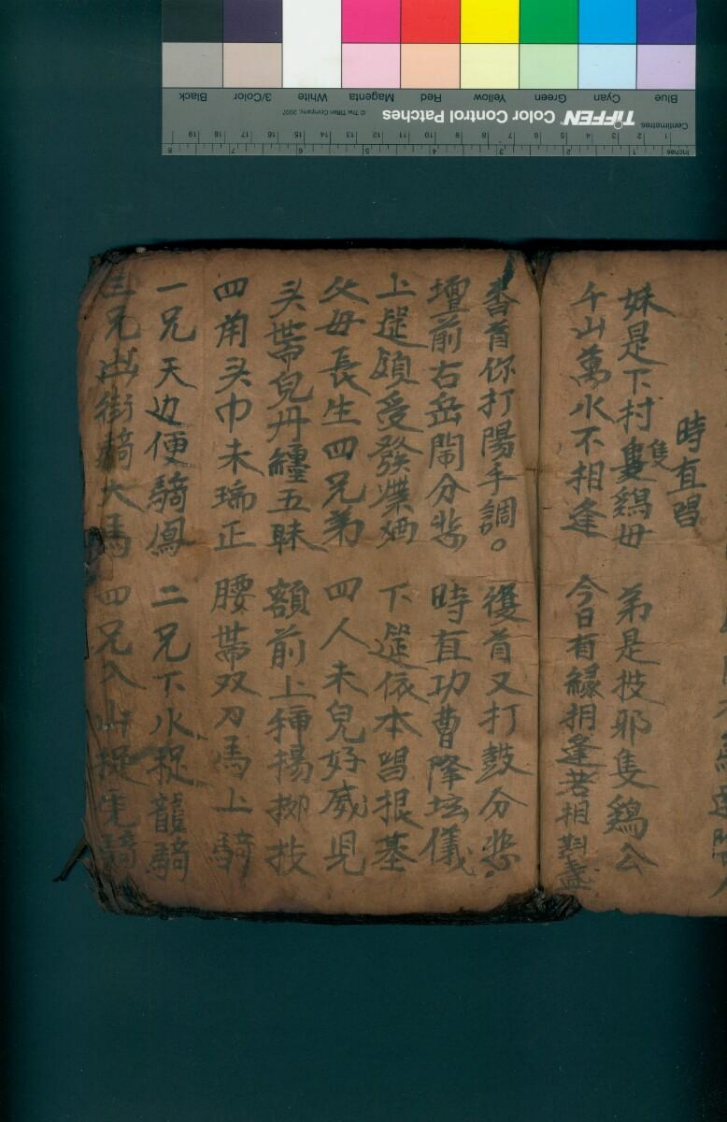 妹是下村隻鷄毋 弟是披邪隻鷄公
千山萬水不相逢 今日有緣相逢若相對盞
時直唱
香首你打陽手調。 復首又打鼓分悲。
壇前右岳鬧分悲 時直功曹降坛儀
上筵領受發業 下筵依本唱根基
父母長生四兄弟 四人未兒好威児
头帶兒丹纏五昧 額前上揷揚柳枝
四角头巾未瑞正 腰帶双刀馬上騎
一兄天边便騎鳳 二兄下水捉龍騎
三兄出街騎大馬 四兄入山捉鬼騎
TIFFEN Color Control Patches
© The Tiffen Company, 2007
Centimetres
Inches
Blue Cyan Green Yellow Red Magenta White 3/Color Black